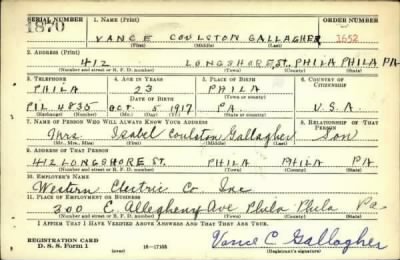 SERIAL NUMBER 1. NAME (Print) ORDER NUMBER
1870 VANCE COULSTON GALLAGHER 1652
(First) (Middle) (Last)
2. ADDRESS (Print)
412 LONGSHORE ST. PHILA PHILA PA
(Number and street or R. F. D. number) (Town) (County) (State)
3. TELEPHONE 4. AGE IN YEARS 5. PLACE OF BIRTH 6. COUNTRY OF CITIZENSHIP
PHILA 23 PHILA
DATE OF BIRTH
PIL 4835 OCT 5 1917 PA. U.S.A.
(Exchange) (Number) (Mo.) (Day) (Yr.) (State or country)
7. NAME OF PERSON WHO WILL ALWAYS KNOW YOUR ADDRESS 8. RELATIONSHIP OF THAT PERSON
Mrs. Isabel Coulston Gallagher Son
(Mr., Mrs., Miss) (First) (Middle) (Last)
9. ADDRESS OF THAT PERSON
412 LONGSHORE ST. PHILA PHILA PA
(Number and street or R. F. D. number) (Town) (County) (State)
10. EMPLOYER'S NAME
Western Electric Co Inc
11. PLACE OF EMPLOYMENT OR BUSINESS
300 E. Allegheny Ave Phila Phila Pa
(Number and street or R. F. D. number) (Town) (County) (State)
I AFFIRM THAT I HAVE VERIFIED ABOVE ANSWERS AND THAT THEY ARE TRUE.
REGISTRATION CARD
D. S. S. Form 1 (over) 16-17105 Vance C Gallagher